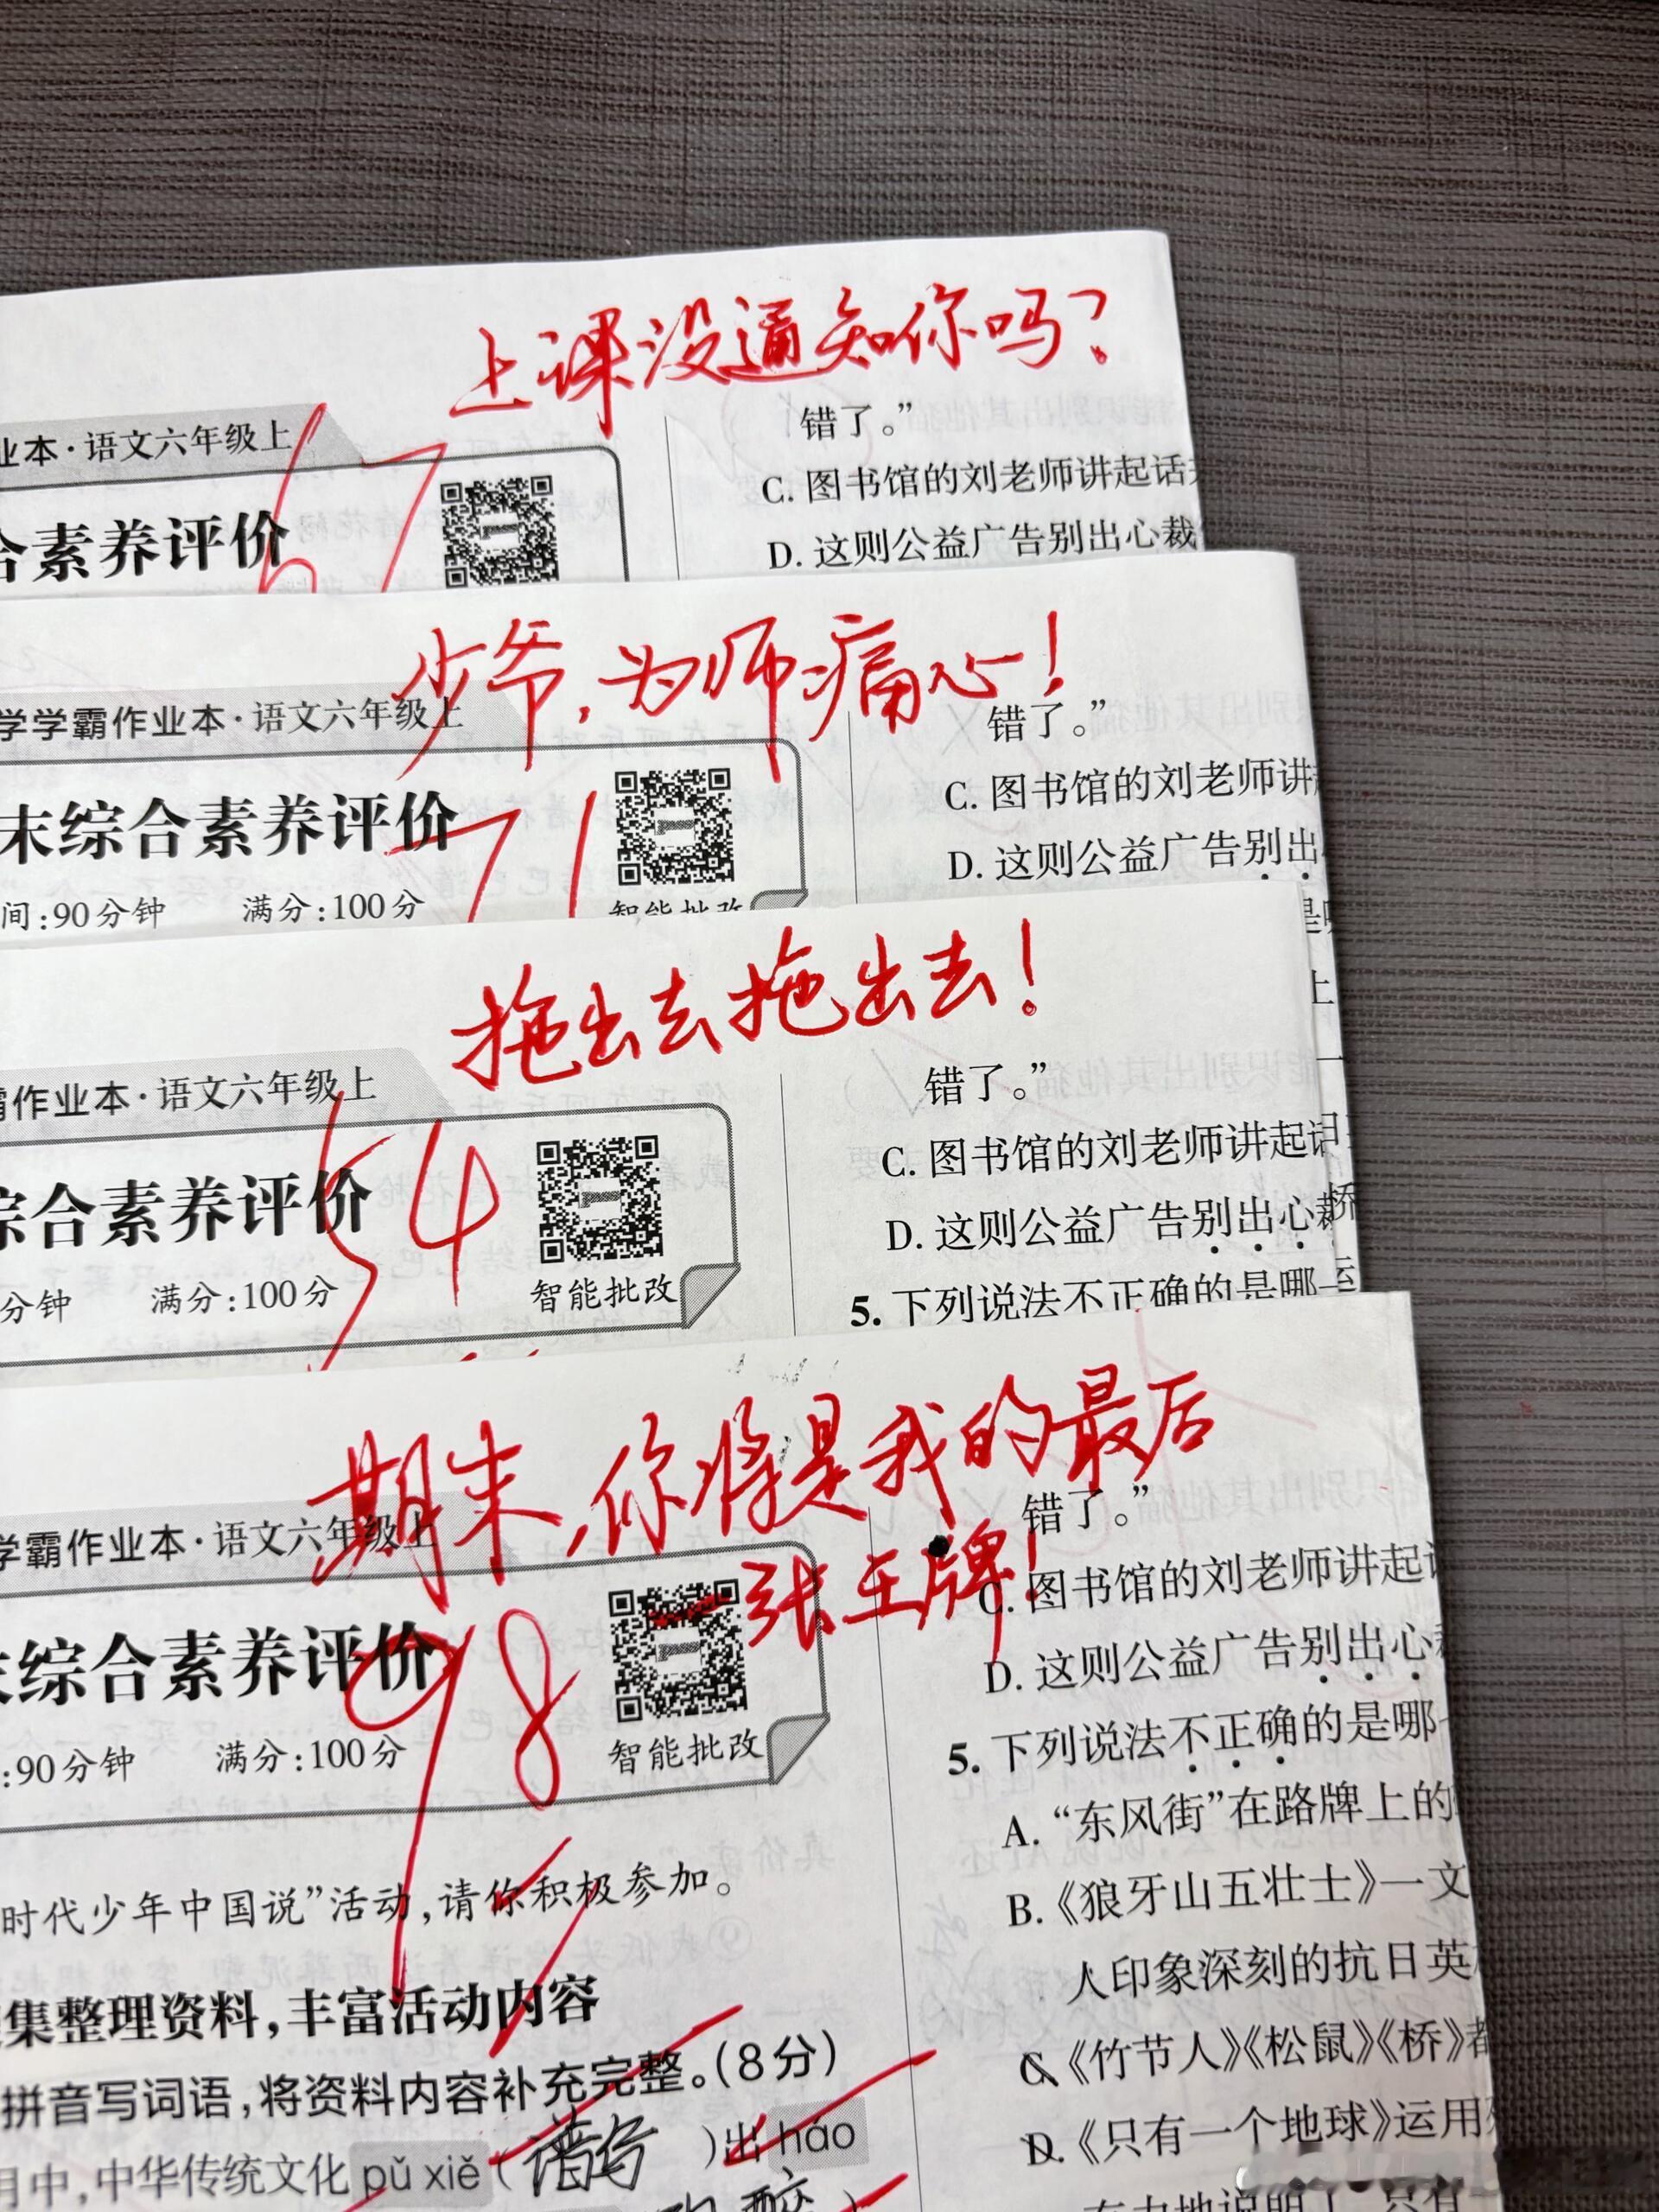 上课没通知你吗？
业本·语文六年级上
67
合素养评价
错了。”
C. 图书馆的刘老师讲起话
D. 这则公益广告别出心裁
少爷，为师痛心！
学学霸作业本·语文六年级上
71
末综合素养评价
间：90分钟 满分：100分
智能批改
错了。”
C. 图书馆的刘老师讲
D. 这则公益广告别出
拖出去拖出去！
霸作业本·语文六年级上
54
综合素养评价
分钟 满分：100分
智能批改
错了。”
C. 图书馆的刘老师讲起
D. 这则公益广告别出心裁
5. 下列说法不正确的是哪一
期末，你将是我的最后
一张王牌！
学霸作业本·语文六年级上
98
末综合素养评价
：90分钟 满分：100分
智能批改
时代少年中国说”活动，请你积极参加。
集整理资料，丰富活动内容
拼音写词语，将资料内容补充完整。（8分）
月中，中华传统文化pǔ xiě（谱写）出háo
错了。”
C. 图书馆的刘老师讲起
D. 这则公益广告别出心
5. 下列说法不正确的是哪
A. “东风街”在路牌上的
B.《狼牙山五壮士》一文
人印象深刻的抗日英
C.《竹节人》《松鼠》《桥》都
D.《只有一个地球》运用